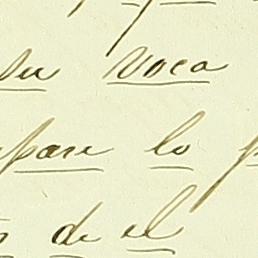 su voca
pare lo
de el